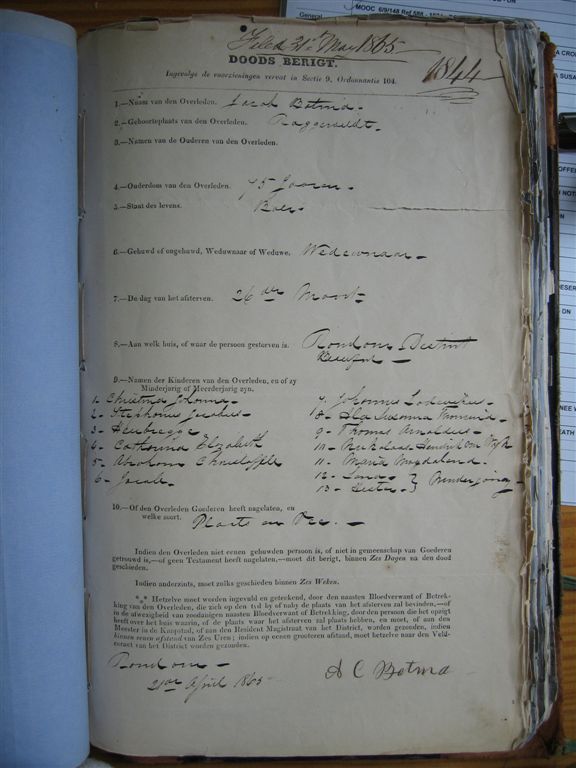 MOOC 6/9/148 Ref 588 - 1824
General
Filed 31st May 1865
1844
DOODS BERIGT.
Ingevolge de voorzieningen vervat in Sectie 9, Ordonnantie 104.
1.—Naam van den Overleden. Jacob Botma.
2.—Geboorteplaats van den Overleden. Roggeveldt.
3.—Namen van de Ouderen van den Overleden.
4.—Ouderdom van den Overleden. 75 Jaaren.
5.—Staat des levens. Boer.
6.—Gehuwd of ongehuwd, Weduwnaar of Weduwe. Wedewnaar.
7.—De dag van het afsterven. 26 der Maart
8.—Aan welk huis, of waar de persoon gestorven is. Rondom District
Beaufort
9.—Namen der Kinderen van den Overleden, en of zy
Minderjarig of Meerderjarig zyn.
1- Christina Johanna
2- Stephanus Jacobus
3-
4- Catharina Elizabeth
5- Abraham Christoffel
6- Jacob
7- Johannes
8- Susanna
9- Thomas Arnoldus
10- Nickolaas Hendrik
11- Maria Magdalena
12-
13- Pieter
10.—Of den Overleden Goederen heeft nagelaten, en
welke soort. Plaats en Vee.
Indien den Overleden niet eenen gehuwden persoon is, of niet in gemeenschap van Goederen
getrouwd is,—of geen Testament heeft nagelaten,—moet dit berigt, binnen Zes Dagen na den dood
geschieden.
Indien anderzints, moet zulks geschieden binnen Zes Weken.
*** Hetzelve moet worden ingevuld en geteekend, door den naasten Bloedverwant of Betrek-
king van den Overleden, die zich op den tyd by of naby de plaats van het afsterven zal bevinden,—of
in de afwezigheid van zoodanigen naasten Bloedverwant of Betrekking, door den persoon die het opzigt
heeft over het huis waarin, of de plaats waar het afsterven zal plaats hebben, en moet, of aan den
Meester in de Kaapstad, of aan den Resident Magistraat van het District, worden gezonden, indien
binnen eenen afstand van Zes Uren; indien op eenen grooteren afstand, moet hetzelve naar den Veld-
cornet van het District worden gezonden.
Rondom
21ste April 1865
A C Botma